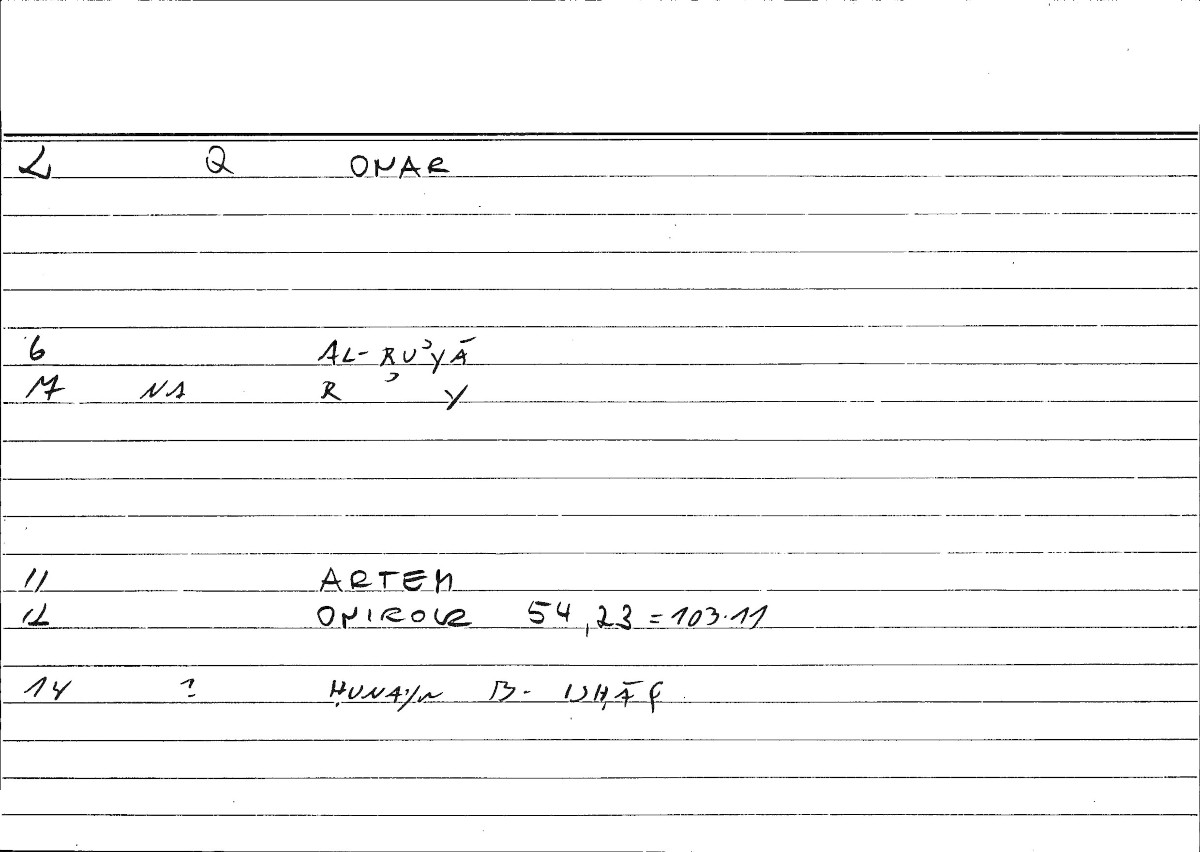 2 Q ONAR
6 AL-RUʾYĀ
7 NA R ʾ Y
11 ARTEM
12 ONIROCR 54,23 = 103.11
14 ? ḤUNAYN B- ISḤĀQ